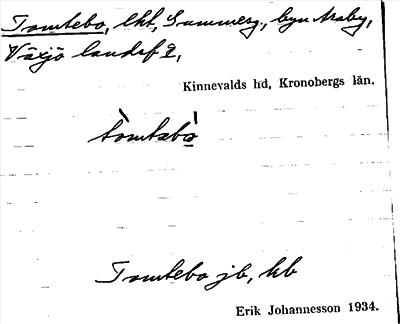 Tomtebo, lht, Gummesg., byn Araby,
Växjö landsf 2,
Kinnevalds hd, Kronobergs län.
tòmtebò
Tomtebo jb, kb
Erik Johannesson 1934.